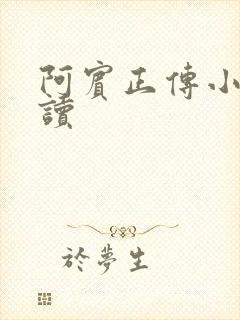 阿賓正傳小
讀
於夢生